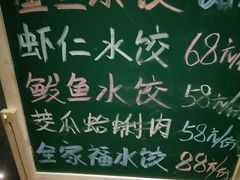 虾仁水饺 68元/份
鲅鱼水饺 58元/份
茭瓜蛤蜊肉 58元/份
全家福水饺 88元/份